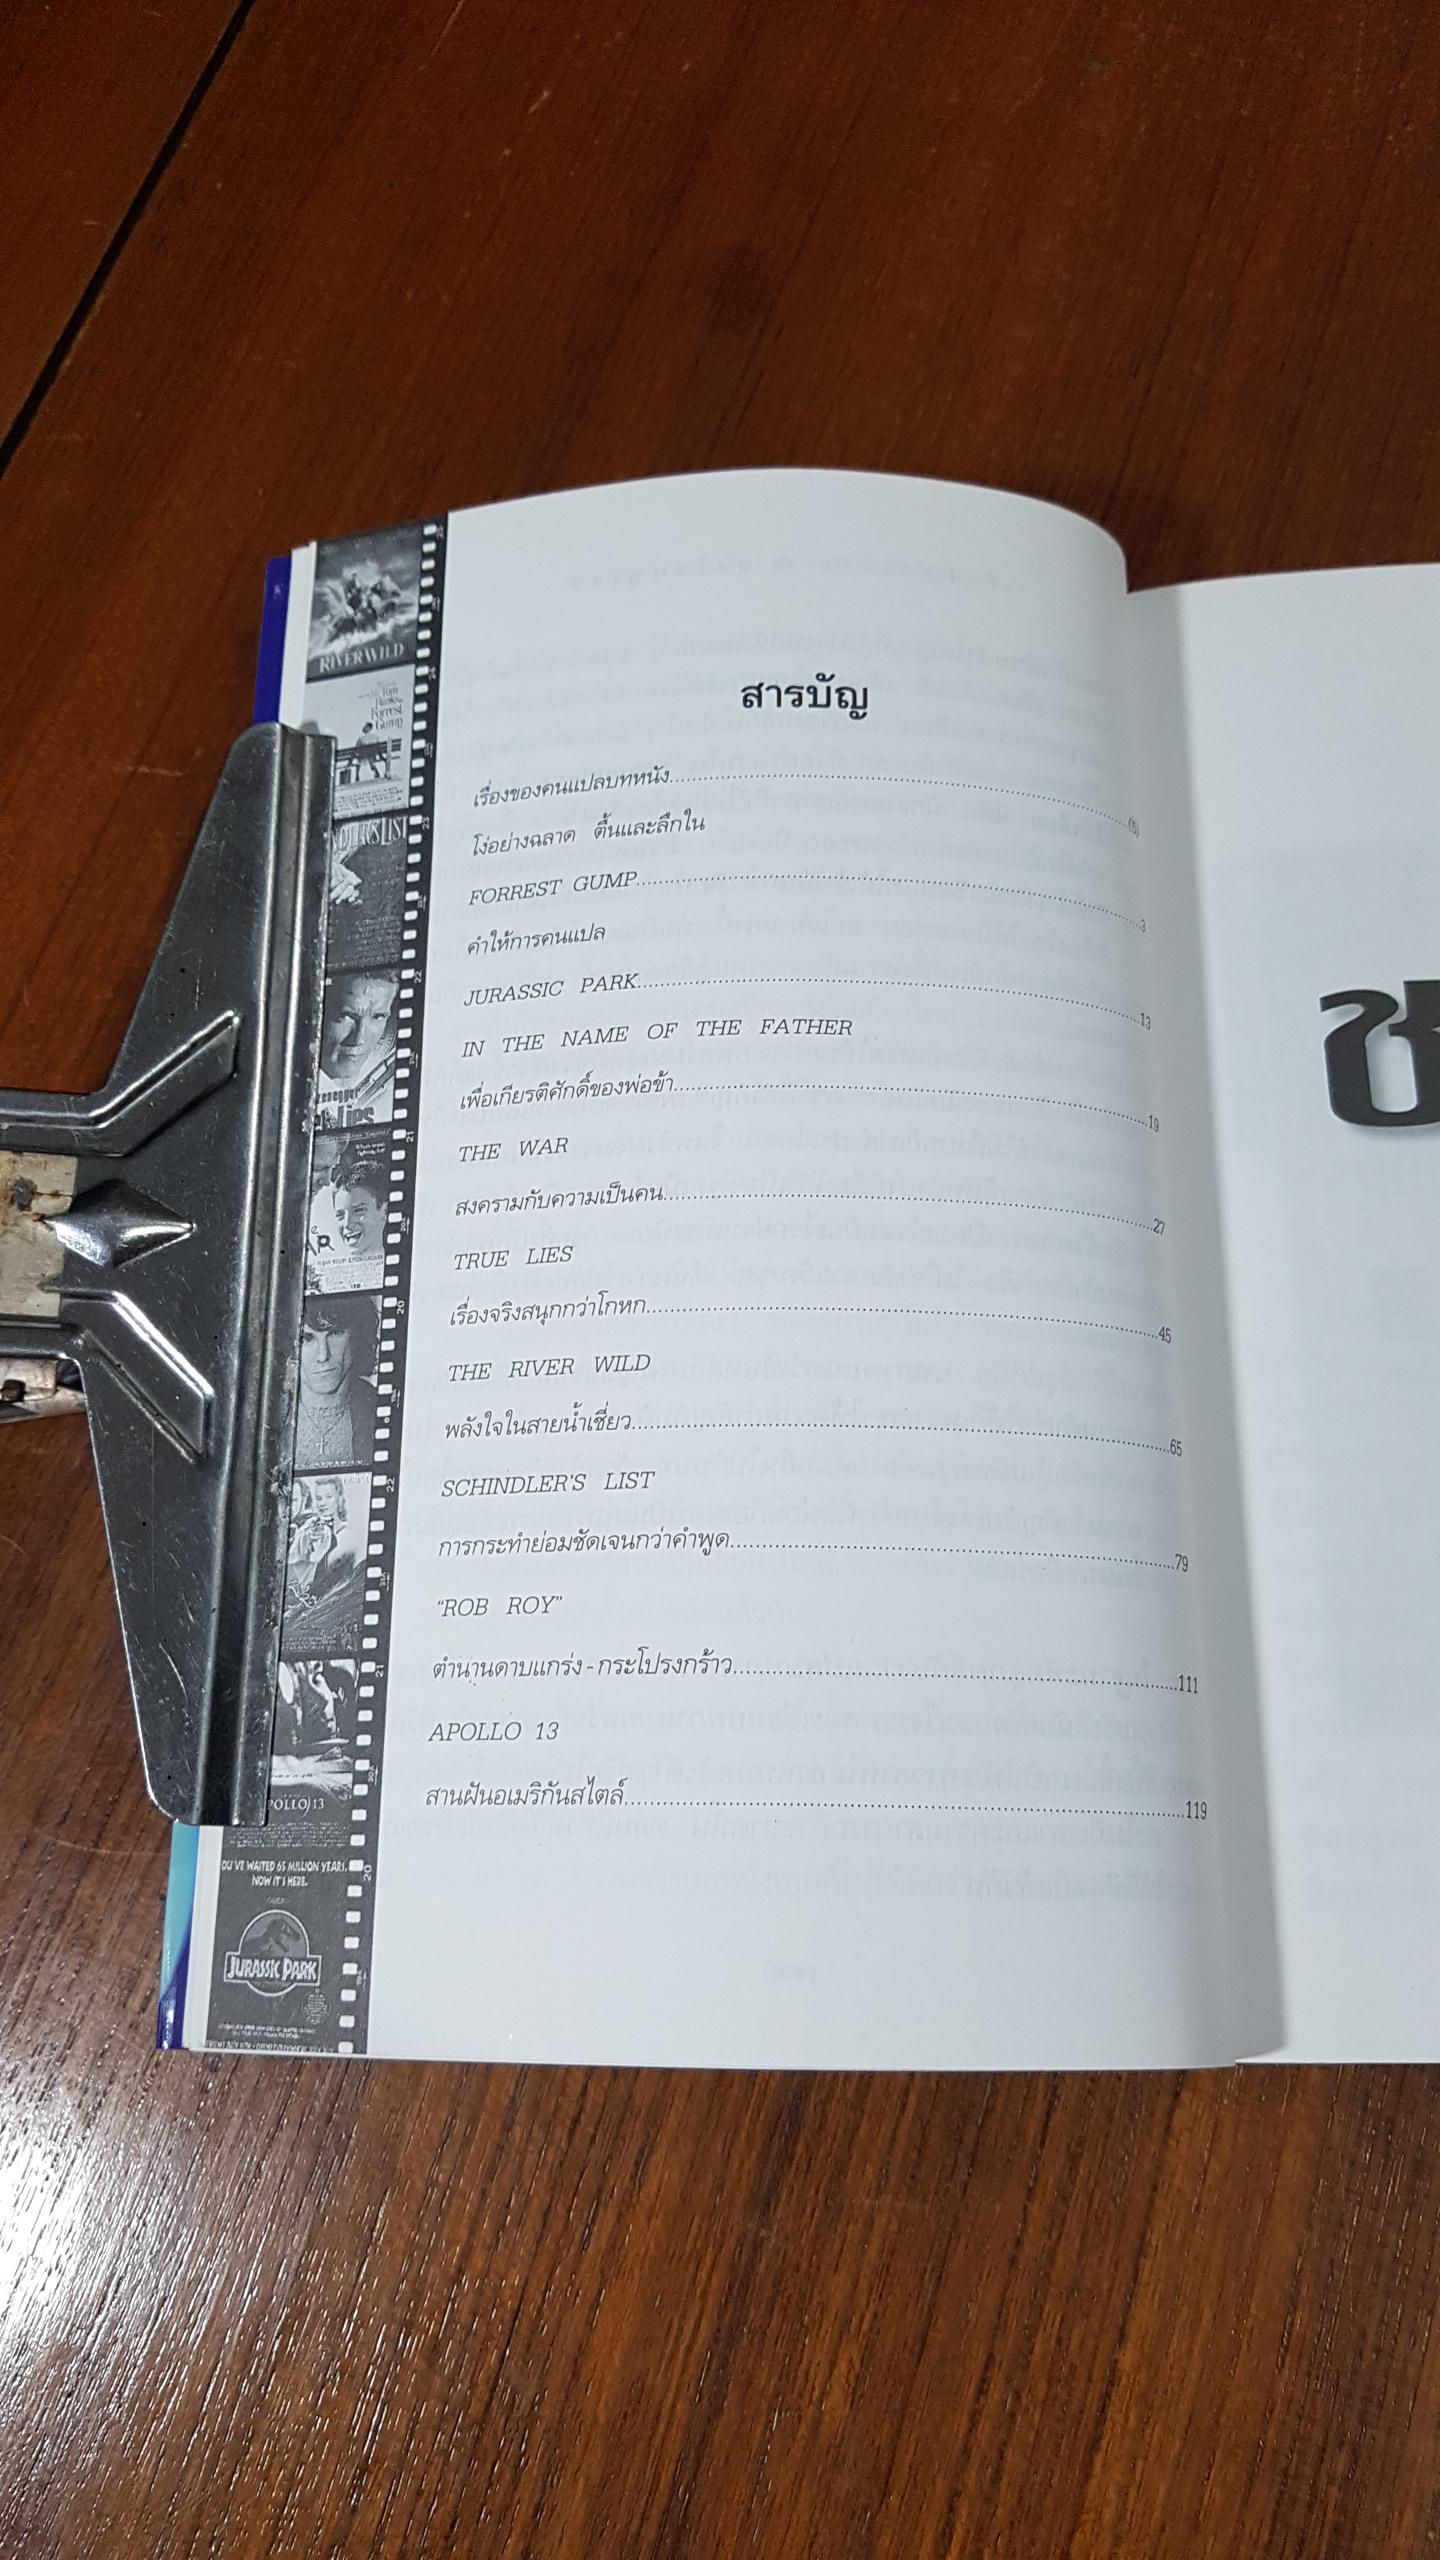 สารบัญ
เรื่องของคนแปลบทหนัง
โง่อย่างฉลาด ตื้นและลึกใน
FORREST GUMP 3
คำให้การคนแปล
JURASSIC PARK 13
IN THE NAME OF THE FATHER
เพื่อเกียรติศักดิ์ของพ่อข้า 19
THE WAR
สงครามกับความเป็นคน 27
TRUE LIES
เรื่องจริงสนุกกว่าโกหก 45
THE RIVER WILD
พลังใจในสายน้ำเชี่ยว 65
SCHINDLER'S LIST
การกระทำย่อมชัดเจนกว่าคำพูด 79
"ROB ROY"
ตำนานดาบแกร่ง-กระโปรงกร้าว 111
APOLLO 13
สานฝันอเมริกันสไตล์ 119
RIVER WILD
Tom
Hanks
Forrest
Gump
Lies
13
WAITED 65 MILLION YEARS.
NOW IT'S HERE.
JURASSIC PARK